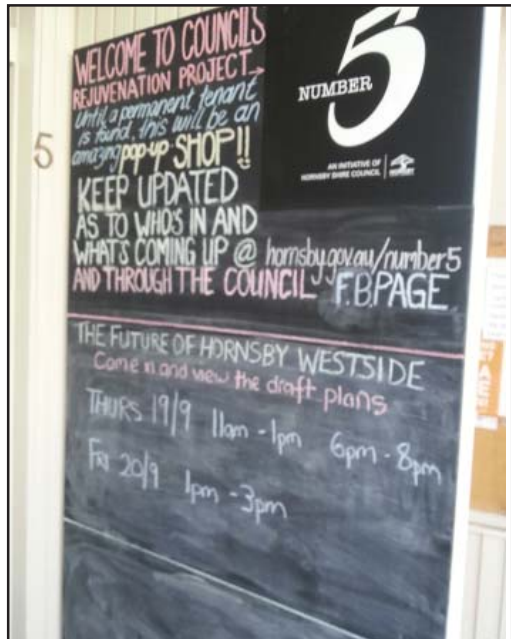 WELCOME TO COUNCILS
REJUVENATION PROJECT →
Until a permanent tenant
is found, this will be an
amazing pop-up SHOP!!
KEEP UPDATED
AS TO WHO'S IN AND
WHAT'S COMING UP @ hornsby.gov.au/number5
AND THROUGH THE COUNCIL F.B.PAGE
NUMBER 5
AN INITIATIVE OF
HORNSBY SHIRE COUNCIL
5
THE FUTURE OF HORNSBY WESTSIDE
Come in and view the draft plans
THURS 19/9 11am - 1pm 6pm - 8pm
FRI 20/9 1pm - 3pm